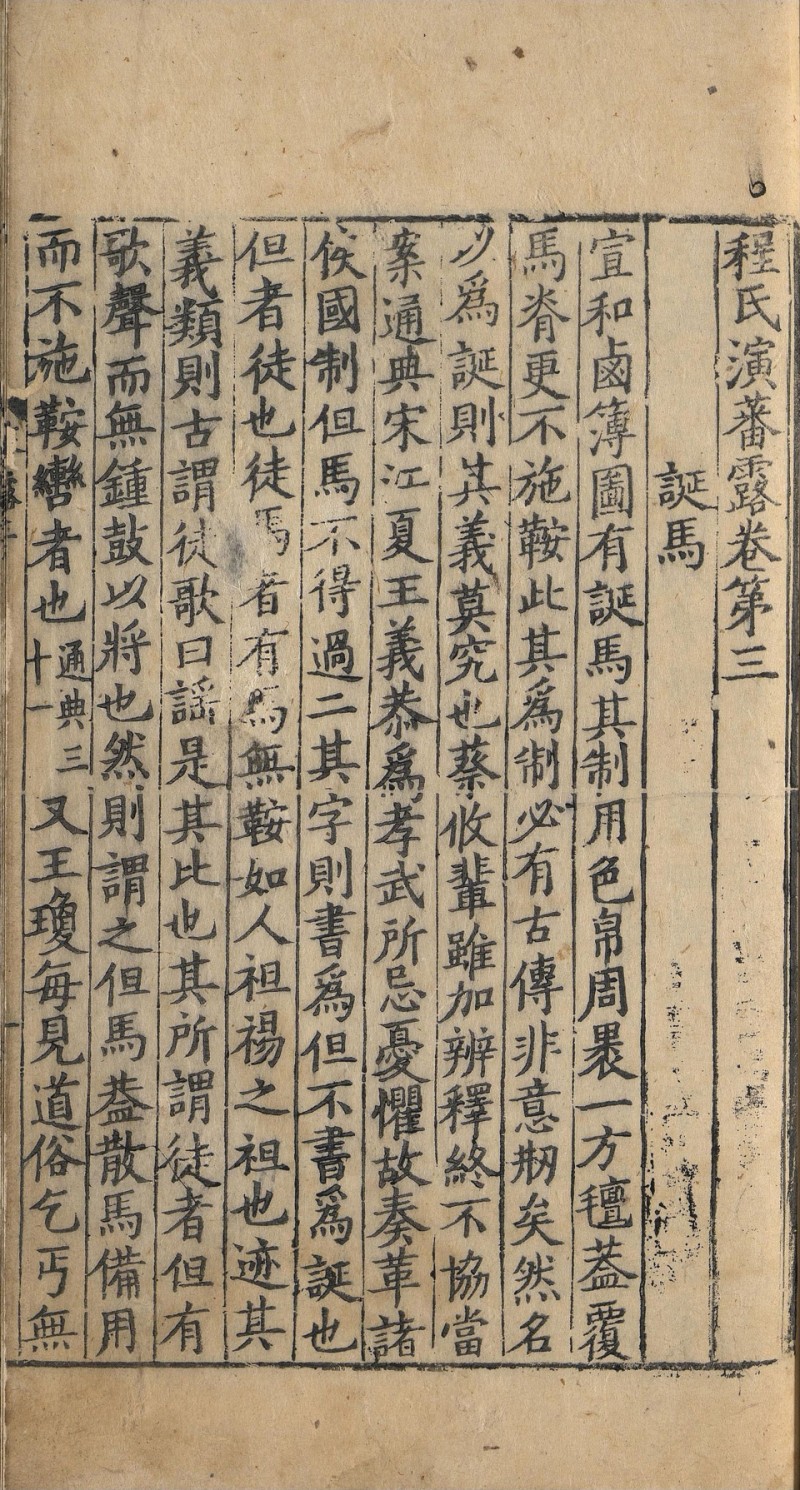 程氏演蕃露卷第三
誕馬
宣和鹵簿圖有誕馬其制用色帛周褁一方氊葢覆
馬脊更不施鞍此其爲制必有古傳非意剏矣然名
以爲誕則其義莫究也蔡攸輩雖加辨釋終不協當
案通典宋江夏王義恭爲孝武所忌憂懼故奏革諸
侯國制但馬不得過二其字則書爲但不書爲誕也
但者徒也徒馬者有馬無鞍如人袒裼之袒也迹其
義類則古謂徒歌曰謡是其比也其所謂徒者但有
歌聲而無鍾鼓以將也然則謂之但馬葢散馬備用
而不施鞍轡者也通典三十一又王瓊每見道俗乞丐無